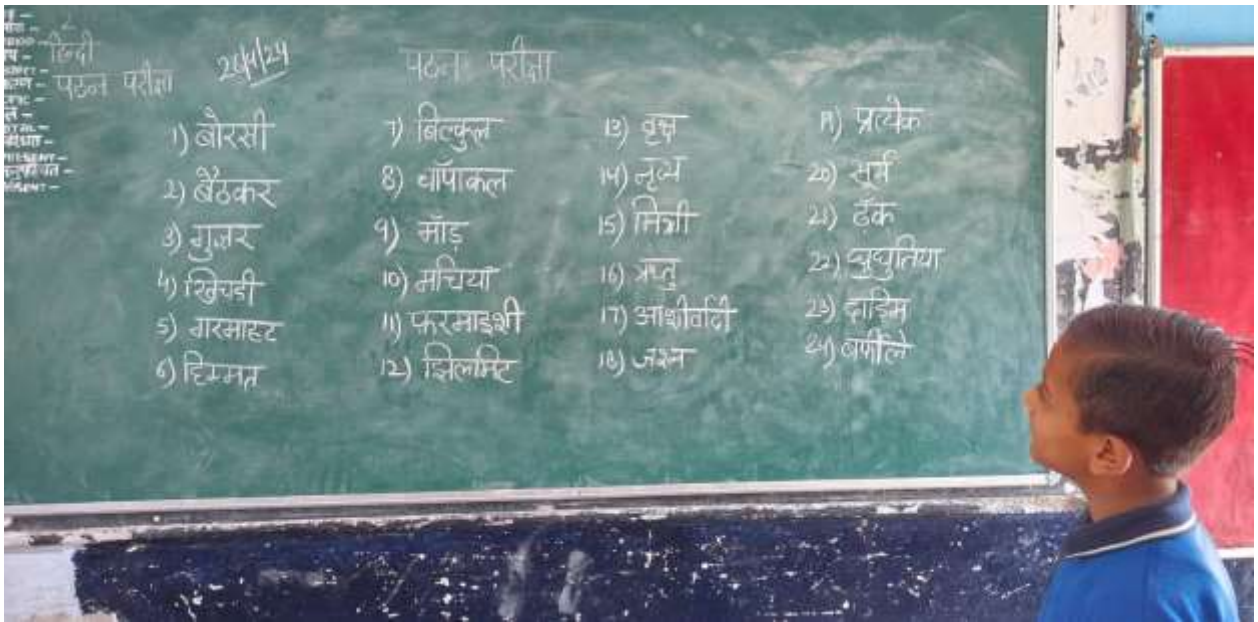 हिन्दी
पठन परीक्षा
पठन परीक्षा
1) बोरसी
2) बैठकर
3) गुजर
4) खिचडी
5) गरमाहट
6) हिम्मत
7) बिल्कुल
8) चाँपाकल
9) माँड़
10) मचियाँ
11) फरमाइशी
12) झिलमिट
13) वृक्ष
14) नृत्य
15) मिश्री
16)
17) आशीर्वादी
18) जश्न
19) प्रत्येक
20) सूर्य
21) ढँक
22) घुघुतिया
23) दाड़िम
24) बर्फीले